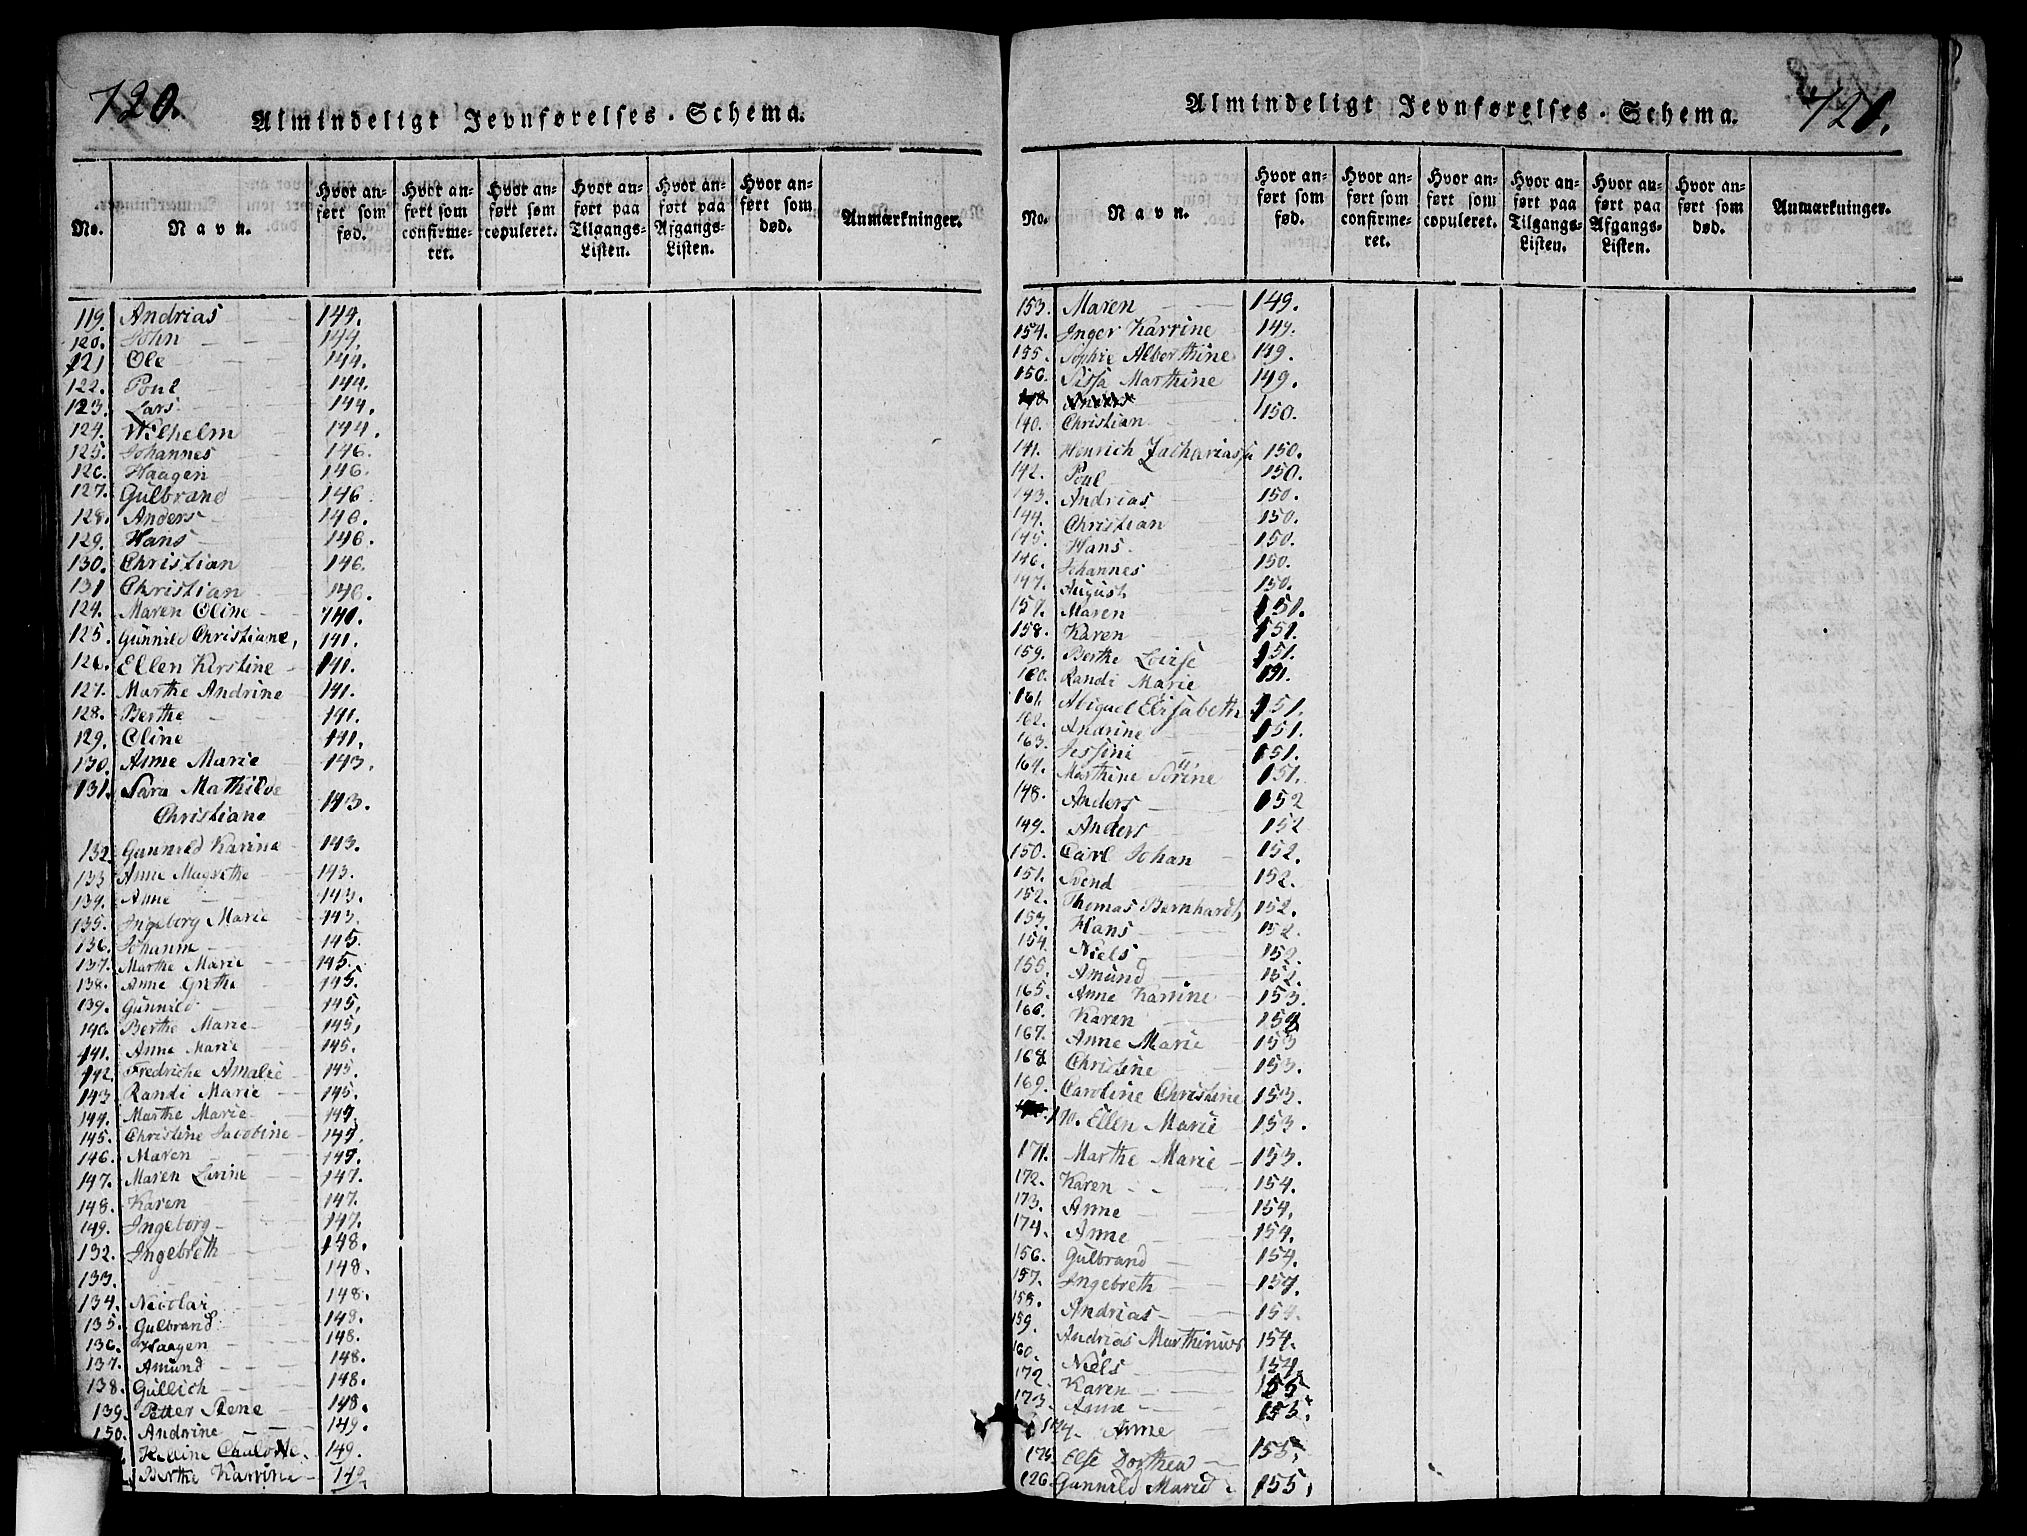 120.
Almindeligt Jevnførelses-Schema.
No.
Navn.
Hvor anført som fød.
Hvor anført som confirmeret.
Hvor anført som copuleret.
Hvor anført paa Tilgangs-Listen.
Hvor anført paa Afgangs-Listen.
Hvor anført som død.
Anmærkninger.
119. Andrias 144.
120. John 144.
121 Ole 144.
122. Poul 144.
123. Lars 144.
124. Wilhelm 144.
125. Johannes 146.
126. Haagen 146.
127. Gulbrand 146.
128. Anders 146.
129. Hans 146.
130. Christian 146.
131 Christian 146.
124. Maren Oline 141.
125. Gunnild Christiane, 141.
126. Ellen Kirstine 141.
127. Marthe Andrine 141.
128. Berthe 141.
129. Oline 141.
130. Anne Marie 143.
131. Sara Mathilde
Christiane 143.
132. Gunnild Karine 143.
133 Anne Magrethe 143.
134. Anne 143.
135. Ingeborg Marie 143.
136. Johanne 145.
137. Marthe Marie 145.
138. Anne Grethe 145.
139. Gunnild 145.
140. Berthe Marie 145.
141. Anne Marie 145.
142. Fredriche Amalie 145.
143. Randi Marie 145.
144. Marthe Marie 147.
145. Christine Jacobine 147.
146. Maren 147.
147. Maren Lovine 147.
148. Karen 147.
149. Ingeborg 147.
132. Ingebreth 148.
133. 148.
134. Nicolai 148.
135. Gulbrand 148.
136. Haagen 148.
137. Amund 148.
138. Gullich 148.
139. Petter Stene 148.
150. Andrine 149.
149.
Berthe Karrine 149
121.
Almindeligt Jevnførelses-Schema.
No.
Navn.
Hvor anført som fød.
Hvor anført som confirmeret.
Hvor anført som copuleret.
Hvor anført paa Tilgangs-Listen.
Hvor anført paa Afgangs-Listen.
Hvor anført som død.
Anmærkninger.
153. Maren 149.
154. Inger Karrine 149.
155. Sophie Alberthine 149.
156. Sissa Marthine 149.
140. Christian 150.
141. Henrich Zacharias 150.
142. Poul 150.
143. Andrias 150.
144. Christian 150.
145. Hans 150.
146. Johannes 150.
147. August 150.
157. Maren 151.
158. Karen 151.
159. Berthe Lovise 151.
160. Randi Marie 151.
161. Abiguel Elisabeth 151.
162. Andrine 151.
163. Jessine 151.
164. Marthine Sørine 151.
148. Anders 152
149. Anders 152
150. Carl Johan 152.
151. Svend 152.
152. Thomas Bernhardt, 152.
153. Hans 152.
154. Niels 152.
155. Amund 152.
165. Anne Karrine 153.
166. Karen 153
167. Anne Marie 153
168 Christine 153.
169. Caroline Christine 153.
170. Ellen Marie 153.
171. Marthe Marie 153.
172. Karen 154.
173. Anne 154.
174. Anne 154.
156. Gulbrand 154.
157. Ingebreth 154.
158. Andrias 154.
159. Andrias Marthinus 154.
160. Niels 154.
172. Karen 155
173. Anne 155.
Anne
Else Dorthea 155.
126. Gunnild Marie 155.